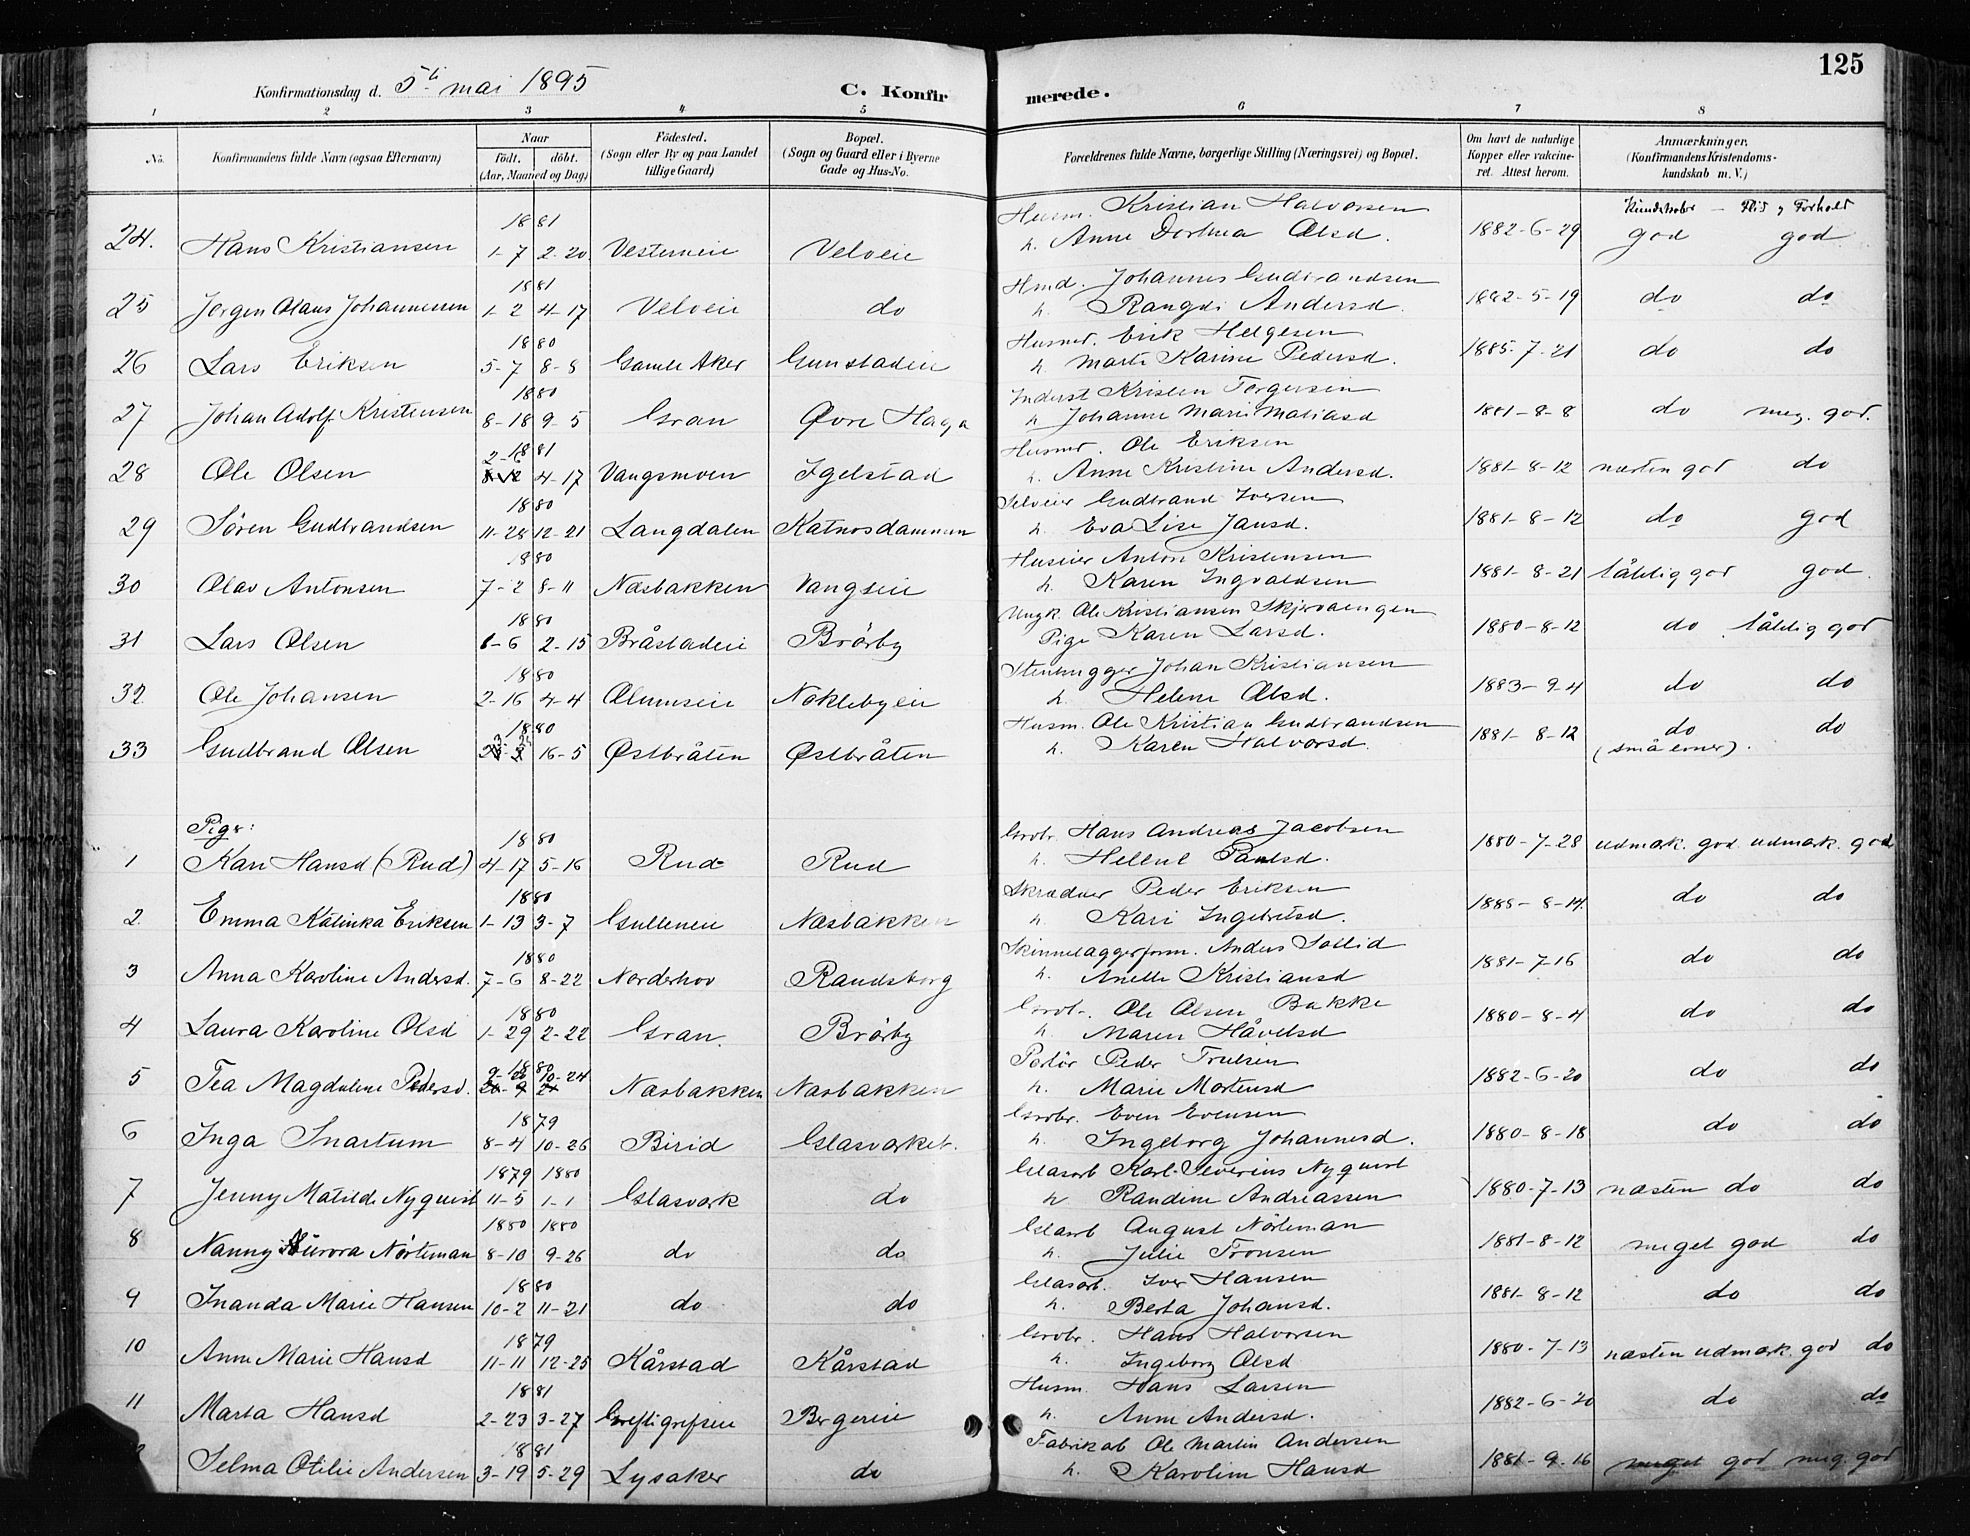 125
Konfirmationsdag d. 5te mai 1895 C. Konfirmerede.
1 2 3 4 5 6 7 8
No. Konfirmandens fulde Navn (ogsaa Efternavn) Naar født. døbt. (Aar, Maaned og Dag) Fødested. (Sogn eller By og paa Landet tillige Gaard) Bopæl. (Sogn og Gaard eller i Byerne Gade og Hus-No. Forældrenes fulde Navne, borgerlige Stilling (Næringsvei) og Bopæl. Om havt de naturlige Kopper eller vakcineret. Attest herom. Anmærkninger. (Konfirmandens Kristendomskundskab m. V.)
1881 Husm. Kristian Halvorsen Kundskaber - Flid & Forhold
24. Hans Kristiansen 1-7 2-20 Vesterneie Velveie h. Anne Dorthea Olsd. 1882-6-29 god god
1881 Hmd. Johannes Gudbrandsen
25 Jørgen Olaus Johannessen 1-2 4-17 Velveie do h. Rangdi Andersd. 1882-5-19 do do
1880 Husmd. Erik Helgesen
26 Lars Eriksen 5-7 8-8 Gamle Aker Gunstadeie h. Marte Karine Pedersd. 1885-7-21 do do
1880 Inderst Kristen Torgersen
27 Johan Adolf Kristensen 8-18 9-5 Gran Øvre Haga h. Johanne Marie Matiasd 1881-8-8 do meg. god.
1881 Husmd. Ole Eriksen
28 Ole Olsen 4-17 Vangsmoen Igelstad h. Anne Kristine Andersd. 1881-8-12 næsten god do
1880 Selveier Gudbrand Iversen
29 Søren Gudbrandsen 11-28 12-21 Langdalen Katnosdammen h. Eva Lise Jansd. 1881-8-12 do god
1880 Huseier Anton Kristensen
30 Olav Antonsen 7-2 8-11 Næsbakken Vangseie h. Karen Ingvaldsen 1881-8-21 tålelig god god
1880 Ungk. Ole Kristiansen Skjervaengen
31 Lars Olsen 1-6 2-15 Bråstadeie Brørby Pige Karen Larsd. 1880-8-12 do tålelig god
1880 Stenhugger Johan Kristiansen
32 Ole Johansen 2-16 4-4 Olumseie Nøklebyeie h. Helene Olsd. 1883-9-4 do do
1880 Husm. Ole Kristian Gudbrandsen
33 Gudbrand Olsen 16-5 Østbråten Østbråten h. Karen Halvorsd. 1881-8-12 do do
(små evner).
Piger:
1880 Grdbr. Hans Andreas Jacobsen
1 Kari Hansd (Rud) 4-17 5-16 Rud Rud h. Hellene Paulsd. 1880-7-28 udmærk. god udmærk. god
1880 Skrædder Peder Eriksen
2 Emma Katinka Eriksen 1-13 3-7 Gulleneie Næsbakken h. Kari Ingebretsd. 1885-8-14. do do
1880 Skinnelæggerform. Anders Sollid
3 Anna Karoline Andersd. 7-6 8-22 Norderhov Randsborg h. Anette Kristiansd 1881-7-16 do do
1880 Grdbr. Ole Olsen Bakke
4 Laura Karoline Olsd 1-29 2-22 Gran. Brørby h. Maren Håvelsd 1880-8-4 do do
1880 Portør Peder Truelsen
5 Tea Magdalene Pedersd. 9-20 10-24 Næsbakken Næsbakken h. Marie Mortensd 1882-6-20 do do
1879 Grdbr. Even Evensen
6 Inga Snartum 8-4 10-26 Birid Glasværket. h. Ingeborg Johannesd. 1880-8-18 do do
1879 1880 Glasarb Karl Severius Nyquist
7 Jenny Matilde Nyquist 11-5 1-1 Glasværk do h. Randine Andreassen 1880-7-13 næsten do do
1880 1880 Glasarb August Nörteman
8 Nanny Aurora Nörteman 8-10 9-26 do do h. Julie Tronsen 1881-8-12 meget god do
1880 Glasarb. Iver Hansen
9 Inanda Marie Hansen 10-2 11-21 do do h. Berta Johansd. 1881-8-12 do do
1879 Grdbr. Hans Halvorsen
10 Anne Marie Hansd 11-11 12-25 Kårstad Kårstad h. Ingeborg Olsd 1880-7-13 næsten udmærk. god do
1881 Husm. Hans Larsen
11 Marta Hansd 2-23 3-27 Greftegrefseie Bergereie h. Anne Andersd. 1882-6-20 do do
1881 Fabrikarb Ole Martin Andersen
Selma Otilie Andersen 3-19 5-29 Lysaker do h. Karoline Hansd 1881-9-16 meget god meg. god